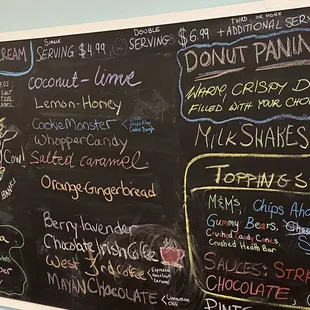 CREAM
SINGLE SERVING $4.99
DOUBLE SERVING $6.99
THIRD OR MORE
+ ADDITIONAL SERV
coconut-lime
Lemon-Honey
CookieMonster
Chips Ahoy
Cookie Dough
WhopperCandy
Salted caramel
Orange-Gingerbread
Berry lavender
Chocolate Irish Coffee
West 3rd Coffee
Espresso
Caramel
MAYAN CHOCOLATE
Cinnamon
SALT
Cow!
DONUT PANIN
WARM, CRISPY D
FILLED WITH YOUR CHO
MILKSHAKES
TOPPINGS
M&M's, Chips Aho
Gummy Bears,
Crushed Candy Canes,
Crushed Heath Bar
SAUCES: STR
CHOCOLATE,
PINTS